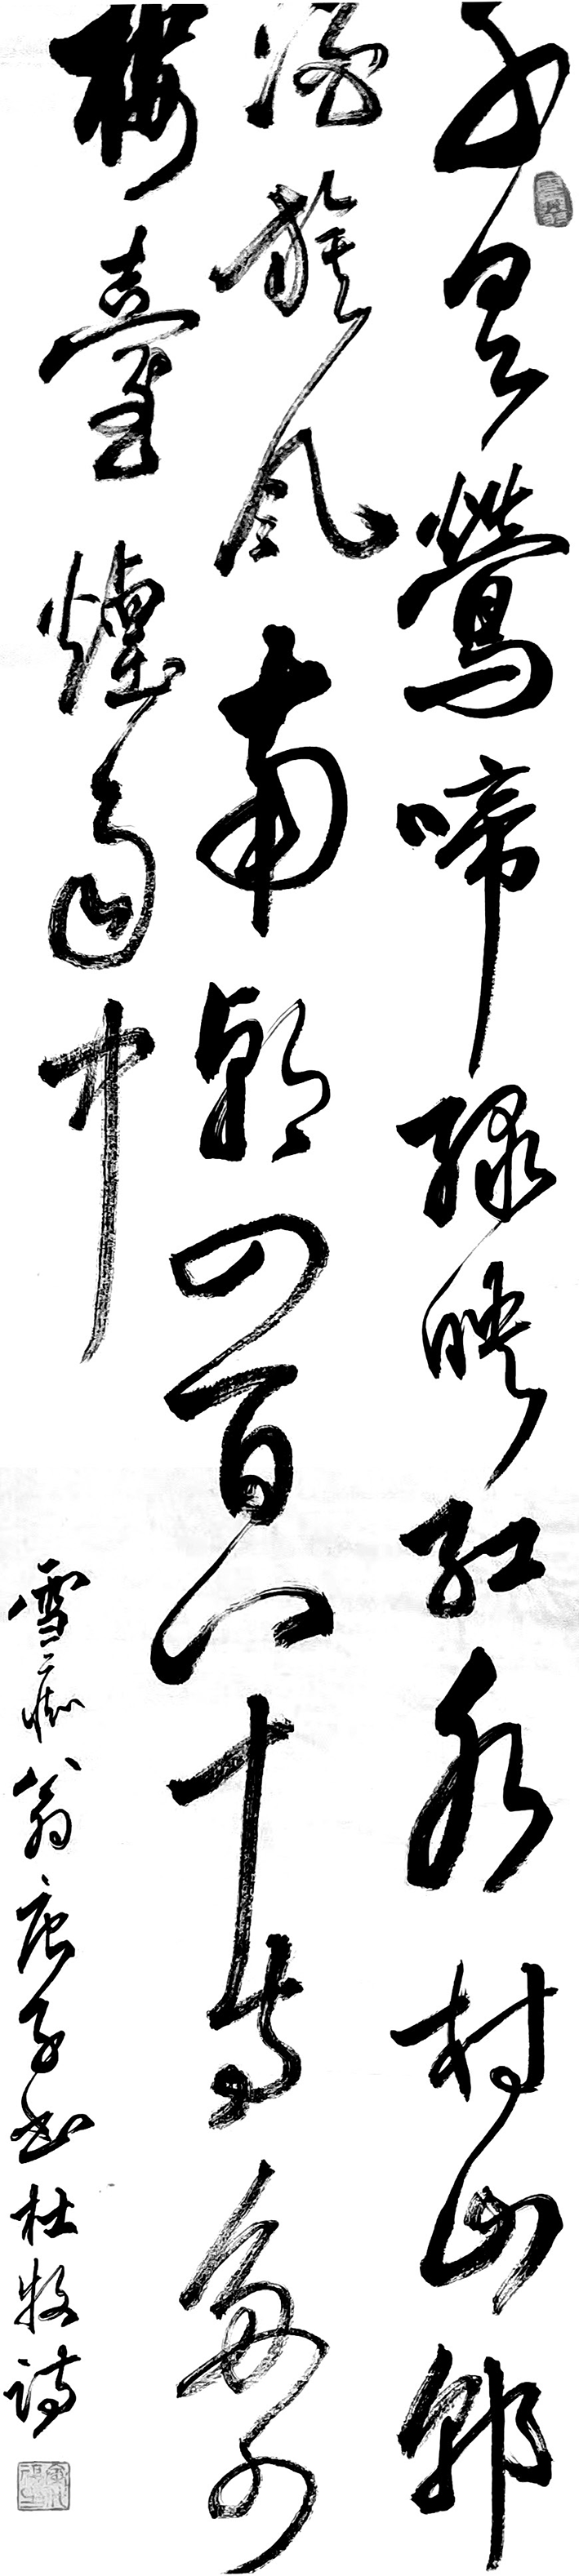 千里莺啼绿映红水村山郭
酒旗风南朝四百八十寺多少
楼臺煙雨中
雪痴翁庚子书杜牧诗